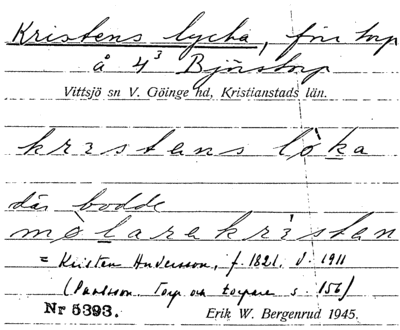 Kristens lycka, förr torp
å 4³ Bjärstorp
Vittsjö sn V. Göinge hd, Kristianstads län.
krıstans lòka
där bodde
mòlarakrìstan
= Kristen Andersson, f. 1821. d. 1911
(Paulsson. Torp och torpare s. 156)
Nr 5393. Erik W. Bergenrud 1945.